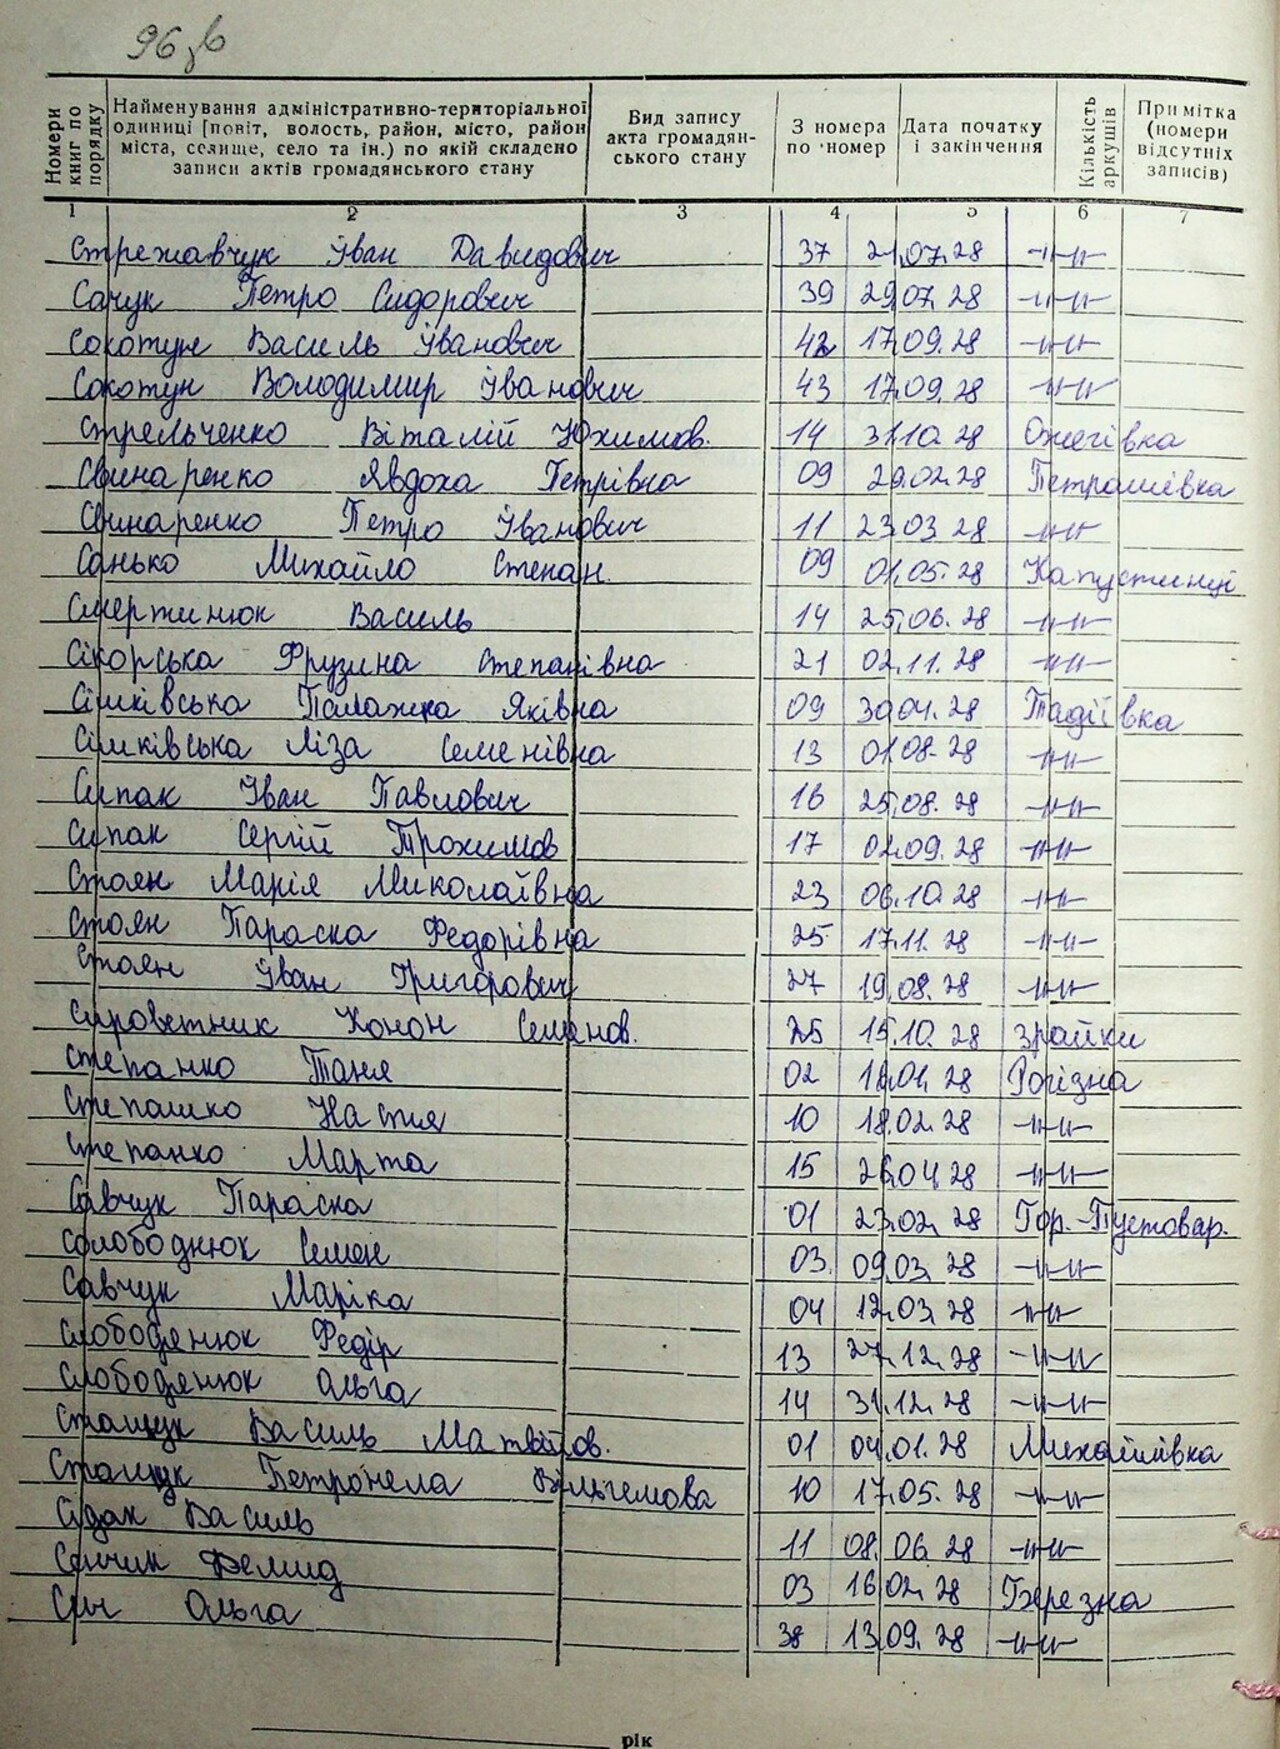 96 зв
Номери книг по порядку
Найменування адміністративно-територіальної одиниці [повіт, волость, район, місто, район міста, селище, село та ін.) по якій складено записи актів громадянського стану
Вид запису акта громадян-ського стану
З номера по номер
Дата початку і закінчення
Кількість аркушів
Примітка (номери відсутніх записів)
1 2 3 4 5 6 7
Стрежавчук Іван Давидович 37 21.07.28 -"-"-
Сачук Петро Сидорович 39 29.07.28 -"-"-
Сокотун Василь Іванович 42 17.09.28 -"-"-
Сокотун Володимир Іванович 43 17.09.28 -"-"-
Стрельченко Віталій Юхимов. 14 31.10.28 Ожегівка
Свинаренко Явдоха Петрівна 09 29.02.28 Петрашівка
Свинаренко Петро Іванович 11 23.03.28 -"-"-
Санько Михайло Степан. 09 01.05.28 Капустинці
Смертинюк Василь 14 25.06.28 -"-"-
Сікорська Фрузина Степанівна 21 02.11.28 -"-"-
Сімківська Палажка Яківна 09 30.04.28 Тадіївка
Сімківська Ліза Семенівна 13 01.08.28 -"-"-
Сипак Іван Павлович 16 25.08.28 -"-"-
Сипак Сергій Трохимов 17 02.09.28 -"-"-
Стоян Марія Миколаївна 23 06.10.28 -"-"-
Стоян Параска Федорівна 25 17.11.28 -"-"-
Стоян Іван Григорович 27 19.08.28 -"-"-
Сироветник Конон Семенов. 25 15.10.28 Зрайки
Степанко Таня 02 18.01.28 Рогізна
Степашко Настя 10 18.02.28 -"-"-
Степанко Марта 15 26.04.28 -"-"-
Савчук Параска 01 23.02.28 Гор.-Пустовар.
Солободнюк Семен 03. 09.03.28 -"-"-
Савчук Маріка 04 12.03.28 -"-"-
Слободянюк Федір 13 27.12.28 -"-"-
Слободянюк Ольга 14 31.12.28 -"-"-
Стащук Василь Матвійов. 01 04.01.28 Михайлівка
Стащук Петронела Вільгемова 10 17.05.28 -"-"-
Сідак Василь 11 08.06.28 -"-"-
Сенчик Демид 03 16.02.28 Березна
Сич Ольга 38 13.09.28 -"-"-
рік